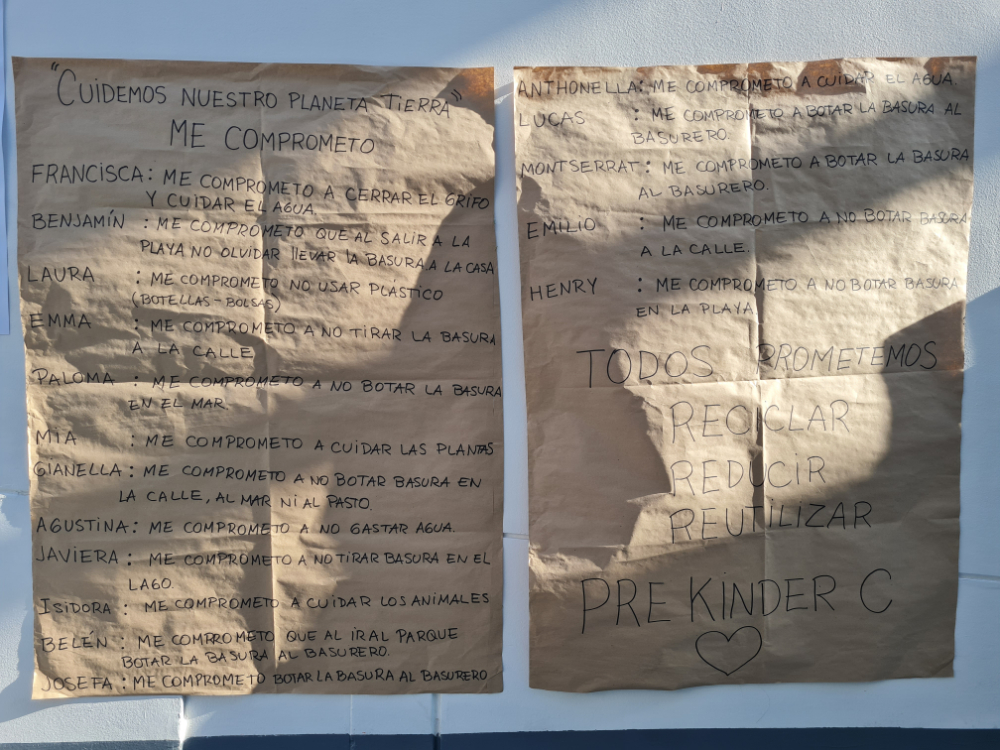 "CUIDEMOS NUESTRO PLANETA TIERRA"
ME COMPROMETO
FRANCISCA: ME COMPROMETO A CERRAR EL GRIFO
Y CUIDAR EL AGUA
BENJAMÍN : ME COMPROMETO QUE AL SALIR A LA
PLAYA NO OLVIDAR LLEVAR LA BASURA A LA CASA
LAURA : ME COMPROMETO NO USAR PLÁSTICO
(BOTELLAS - BOLSAS)
EMMA : ME COMPROMETO A NO TIRAR LA BASURA
A LA CALLE.
PALOMA : ME COMPROMETO A NO BOTAR LA BASURA
EN EL MAR.
MIA : ME COMPROMETO A CUIDAR LAS PLANTAS
GIANELLA: ME COMPROMETO A NO BOTAR BASURA EN
LA CALLE, AL MAR NI AL PASTO.
AGUSTINA: ME COMPROMETO A NO GASTAR AGUA.
JAVIERA : ME COMPROMETO A NO TIRAR BASURA EN EL
LAGO.
ISIDORA : ME COMPROMETO A CUIDAR LOS ANIMALES
BELÉN : ME COMPROMETO QUE AL IR AL PARQUE
BOTAR LA BASURA AL BASURERO.
JOSEFA : ME COMPROMETO BOTAR LA BASURA AL BASURERO
ANTHONELLA: ME COMPROMETO A CUIDAR EL AGUA.
LUCAS : ME COMPROMETO A BOTAR LA BASURA AL
BASURERO.
MONTSERRAT: ME COMPROMETO A BOTAR LA BASURA
AL BASURERO.
EMILIO : ME COMPROMETO A NO BOTAR BASURA
A LA CALLE.
HENRY : ME COMPROMETO A NO BOTAR BASURA
EN LA PLAYA
TODOS PROMETEMOS
RECICLAR
REDUCIR
REUTILIZAR
PRE KINDER C